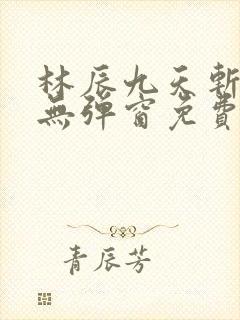 林辰九天斬
無彈窗免費
青辰芳